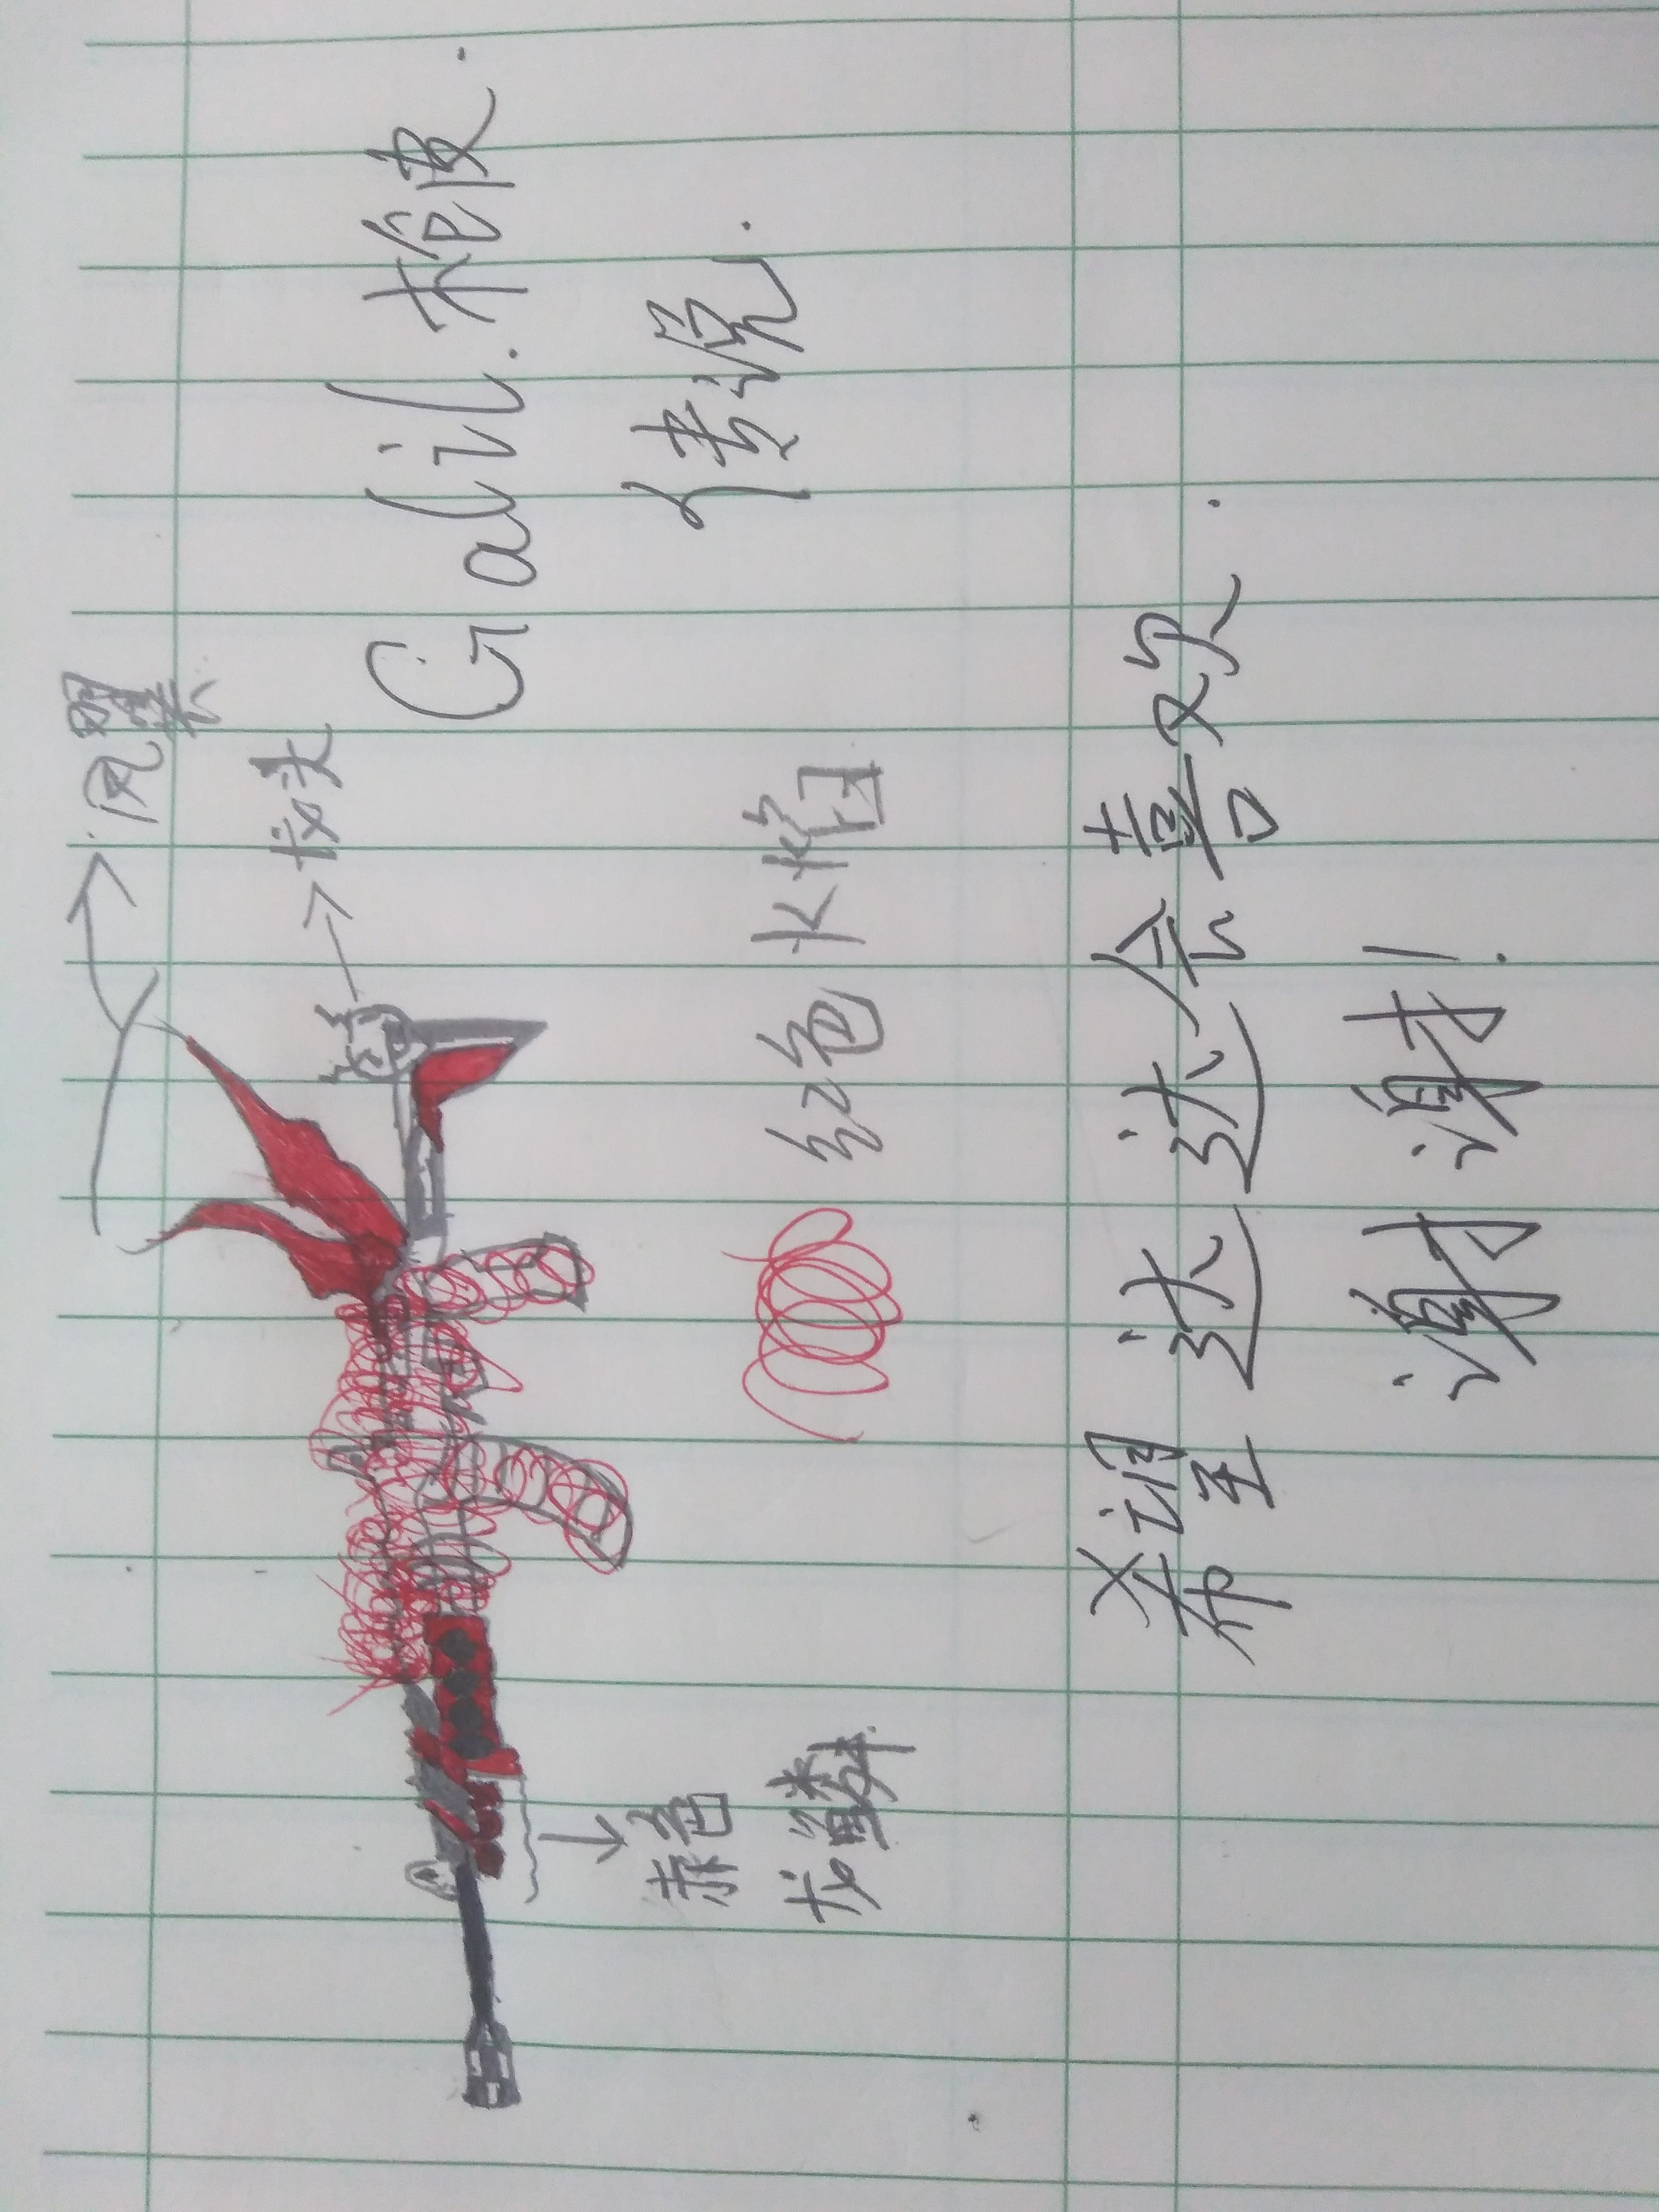 龙头
Galil.枪皮.
传说.
赤色
龙鳞
红色火焰
希望达达会喜欢.
谢谢!